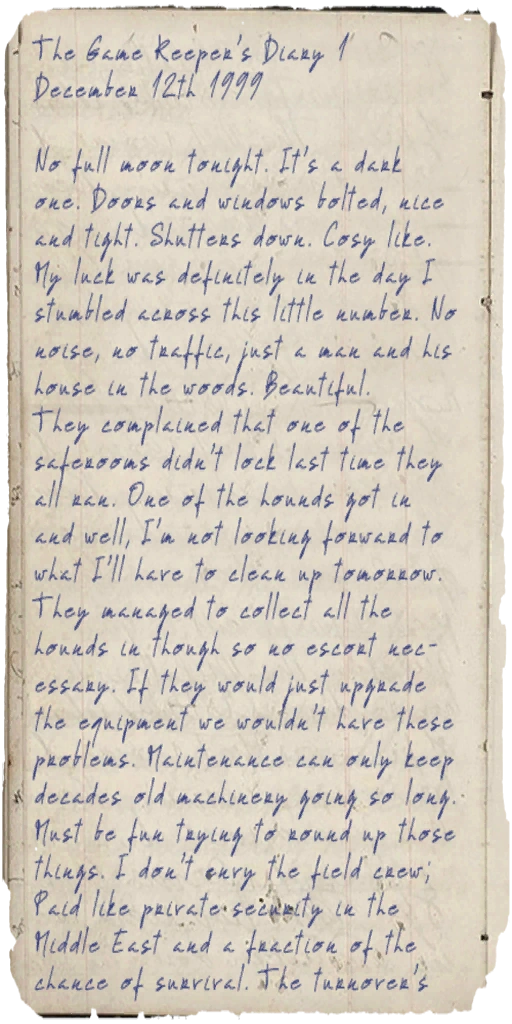 The Game Keeper's Diary 1
December 12th 1999

No full moon tonight. It's a dark
one. Doors and windows bolted, nice
and tight. Shutters down. Cosy like.
My luck was definitely in the day I
stumbled across this little number. No
noise, no traffic, just a man and his
house in the woods. Beautiful.
They complained that one of the
saferooms didn't lock last time they
all ran. One of the hounds got in
and well, I'm not looking forward to
what I'll have to clean up tomorrow.
They managed to collect all the
hounds in though so no escort nec-
essary. If they would just upgrade
the equipment we wouldn't have these
problems. Maintenance can only keep
decades old machinery going so long.
Must be fun trying to round up those
things. I don't envy the field crew;
Paid like private security in the
Middle East and a fraction of the
chance of survival. The turnover's